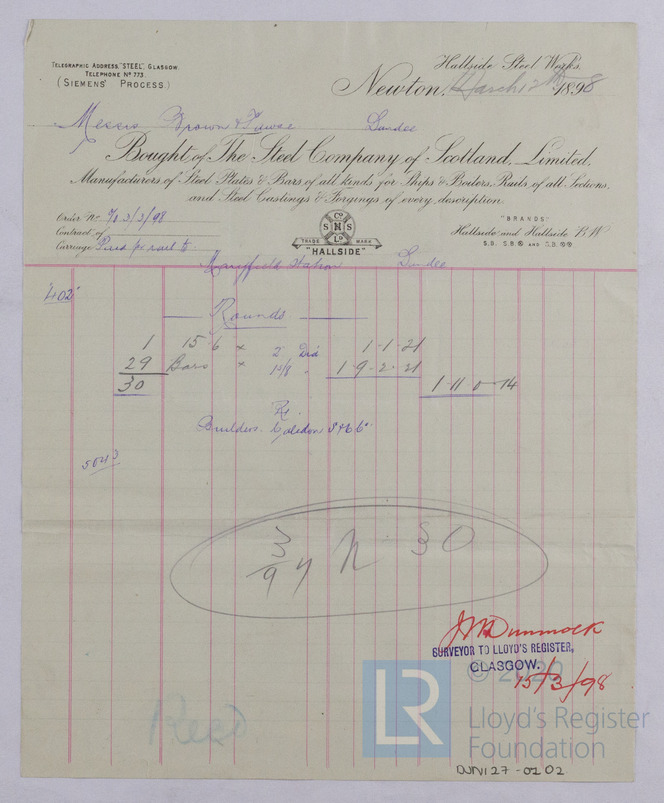 TELEGRAPHIC ADDRESS, "STEEL", GLASGOW.
TELEPHONE No 773
(SIEMENS' PROCESS)
Hallside Steel Works,
Newton, March 12th 1898
Messrs Brown & Dundee
Bought of The Steel Company of Scotland, Limited,
Manufacturers of Steel Plates & Bars of all kinds for Ships & Boilers, Rails of all Sections,
and Steel Castings & Forgings of every description.
Order No 3/3/98
Contract of
Carriage Paid per rail to
Maryfield Station Dundee
Co
S N S
Ld
TRADE MARK
"HALLSIDE"
"BRANDS"
Hallside and Hallside B.W.
S.B. S.B.® AND S.B.®®
402
Rounds
1 15 6 × 2 Dia 1-1-21
29 Bars × 1 5/8 " 1-9-2-21
30 1-11-0-14
Re.
Builders. Caledon
5043
3/9
30
SURVEYOR TO LLOYD'S REGISTER,
GLASGOW.
15/3/98
Reed
LR
© 2020
Lloyd's Register
Foundation
DUN127-0202